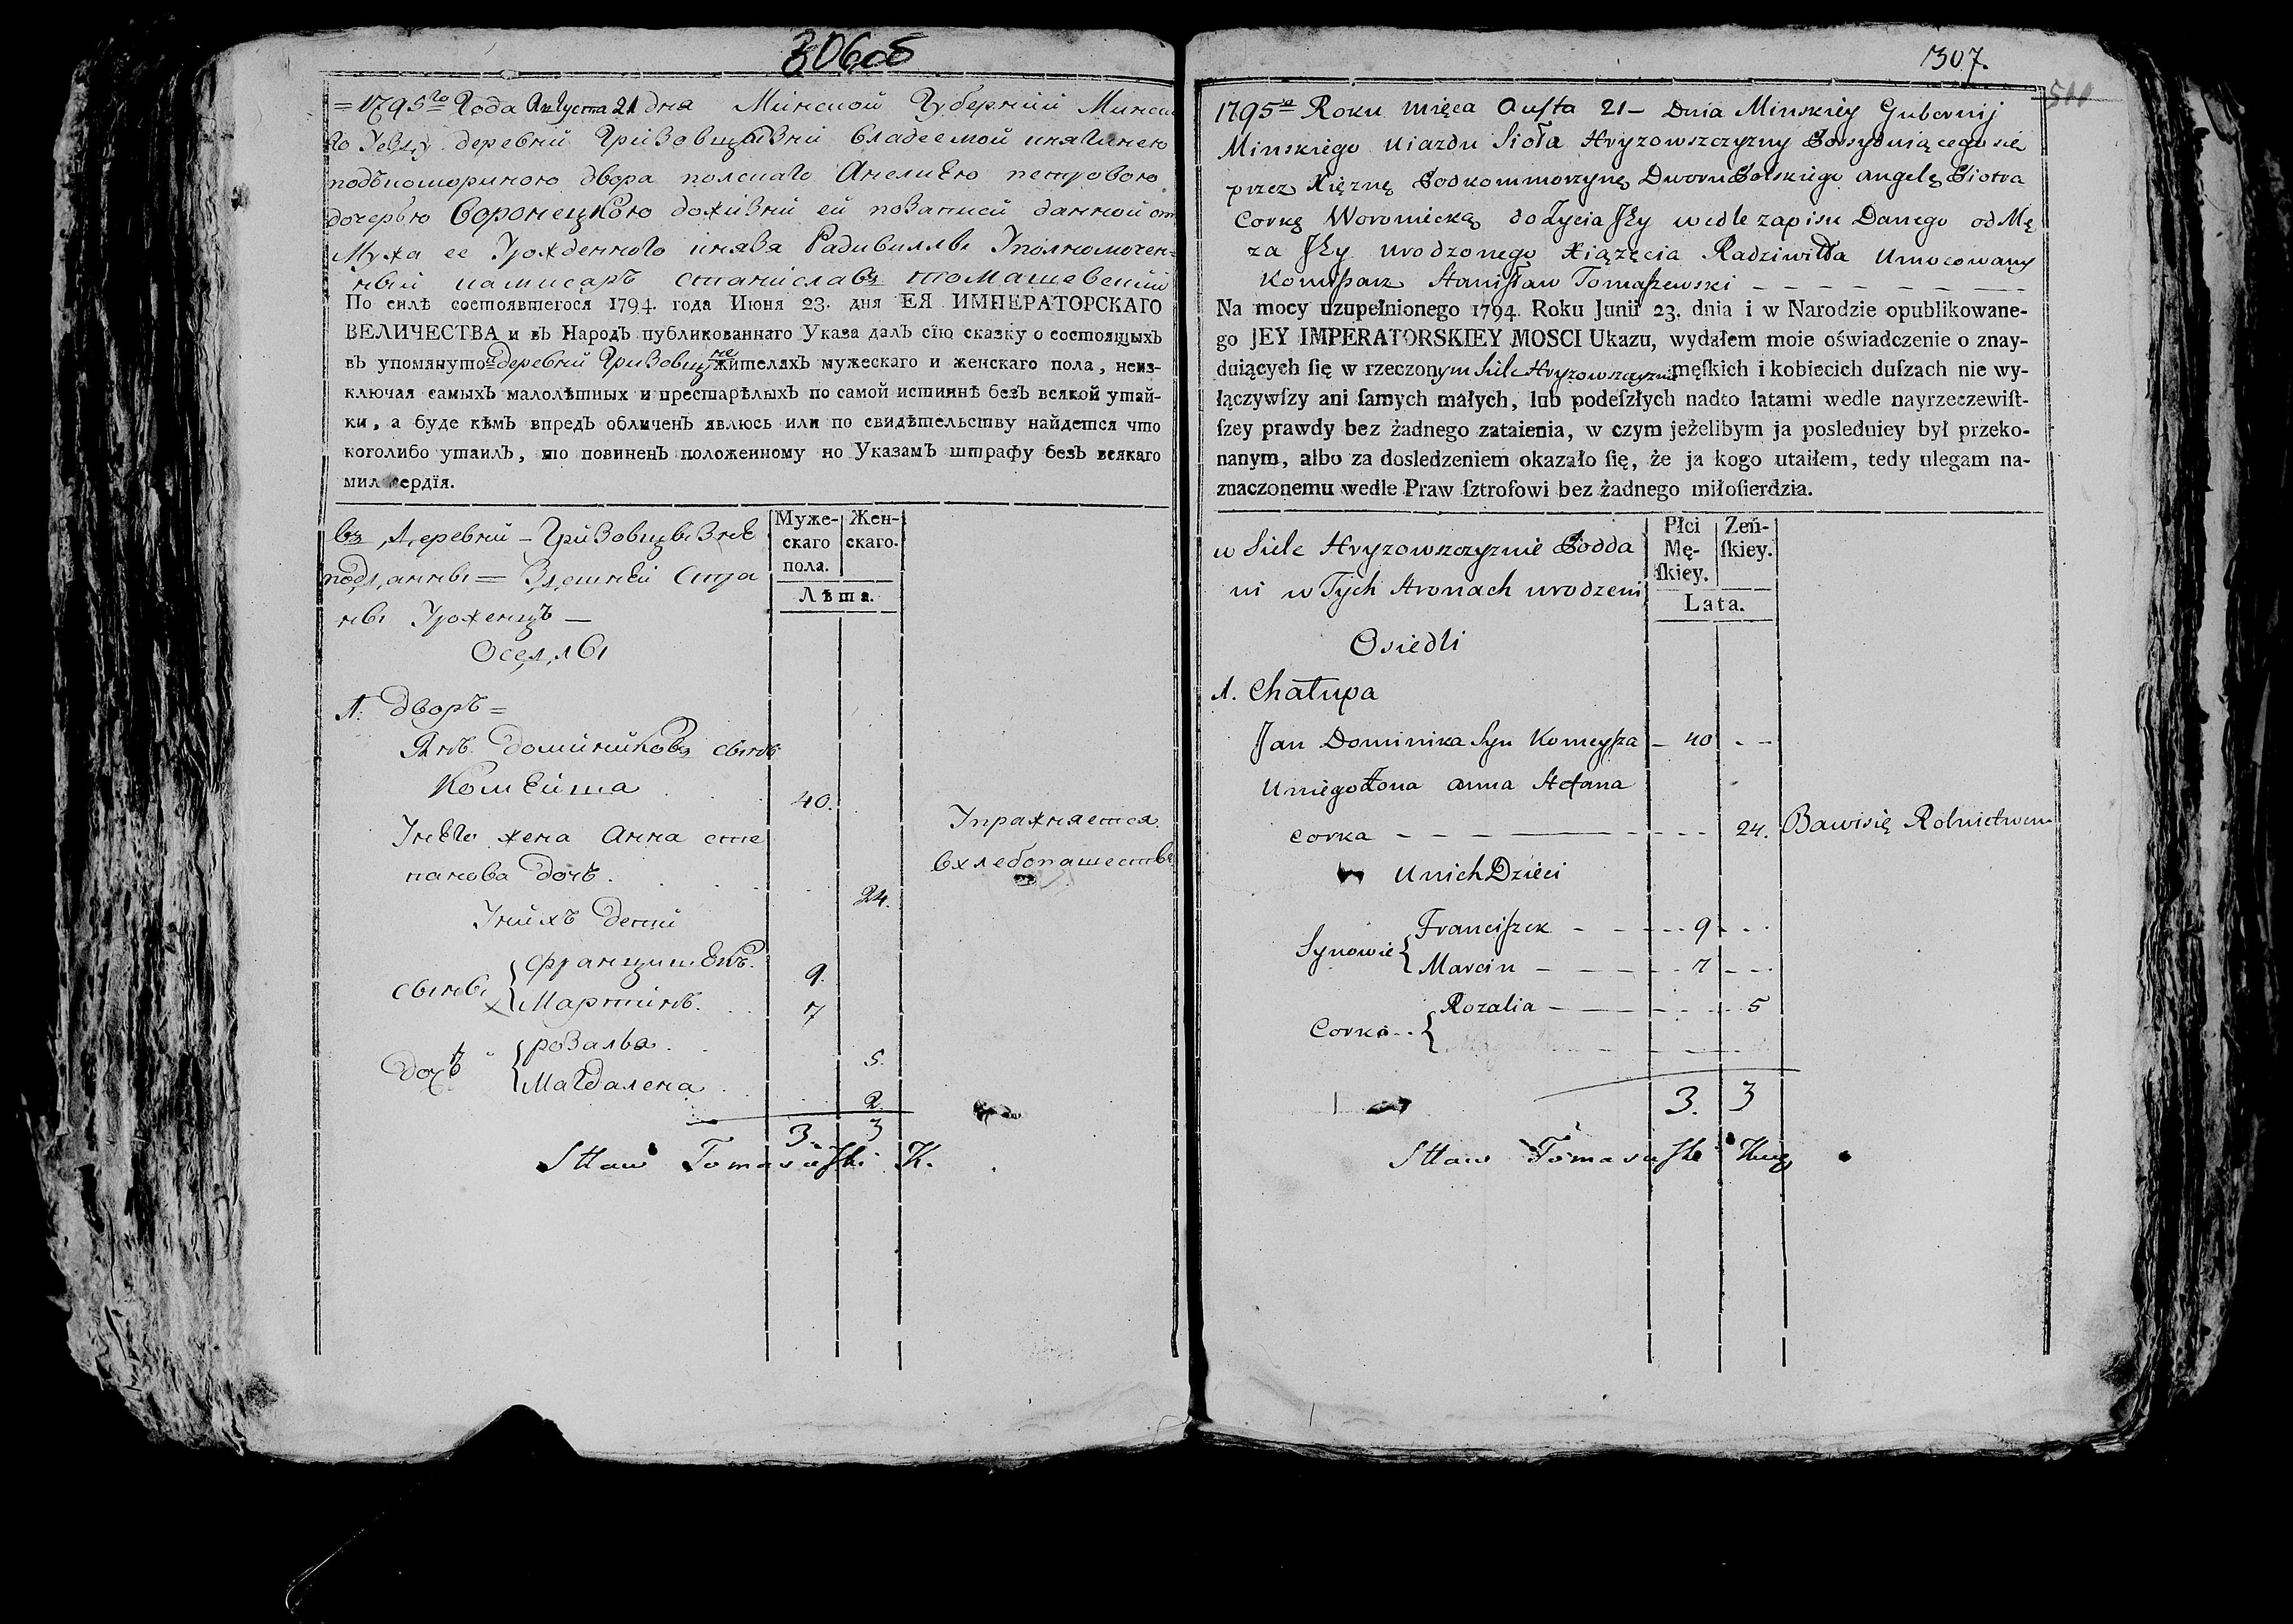 306 об
= 1795го Года Августа 21 дня Минской Губернии Минска
го Уезду деревни Гризовщызни владеемой княгинею
подъкомориною двора полскаго Анелиею петровою
дочерью Воронецкою доживни ей позаписи данной от
Мужа ее Урожденного князя Радивиллы Уполномочен=
ный камисаръ станиславъ томашевский
По силѣ состоявшегося 1794. года Июня 23. дня ЕЯ ИМПЕРАТОРСКАГО
ВЕЛИЧЕСТВА и въ Народъ публикованнаго Указа далъ сїю сказку о состоящыхъ
въ упомянутой деревни Гризовщызне жителяхъ мужескаго и женскаго пола, неиз-
ключая самыхъ малолѣтныхъ и престарѣлыхъ по самой истиннѣ безъ всякой утай-
ки, а буде кѣмъ впредъ обличенъ явлюсь или по свидѣтельству найдется что
коголибо утаилъ, то повиненъ положенному по Указамъ штрафу безъ всякаго
милосердїя.
въ Деревни - Гризовщызне
подданны = Здешней Стра
ны Уроженцъ —
Оселлы
Муже- Жен-
скаго скаго.
пола.
Лѣта.
1. дворъ =
Янъ Доминиковъ сынъ
Комейша 40.
Унего жена Анна сте
панова дочь 24.
Упражняется
вхлебопашестве
Унихъ дети
сыны { Францишекъ. 9.
Мартинъ. 7
Дочь { розалья. 5.
Магдалена 2
3. 3
Sttaw Tomaszeſki K.
307.
511
1795go Roku Mięca Auſta 21 - Dnia Minskiey Gubernij
Minskiego Uiazdu Sioła Hryzowszczyzny Possyduiącegosie
przez Xięznę Podkommorzynę Dworu Polskiego Angelę Piotra
Corkę Woroniecką do Życia Jſzy wedle zapisu Danego od Mę
za Jſzy urodzonego Xiązęcia Radziwiłła Umocowany
Komiſsarz Stanisław Tomaſzewski
Na mocy uzupełnionego 1794. Roku Junii 23. dnia i w Narodzie opublikowane-
go JEY IMPERATORSKIEY MOSCI Ukazu, wydałem moie oświadczenie o znay-
duiących ſię w rzeczonym Siele Hryzowszczyznie męſkich i kobiecich duſzach nie wy-
łączywſzy ani ſamych małych, lub podeſzłych nadto latami wedle nayrzeczewiſt-
ſzey prawdy bez żadnego zataienia, w czym jeżelibym ja posledniey był przeko-
nanym, albo za dosledzeniem okazało ſię, że ja kogo utaiłem, tedy ulegam na-
znaczonemu wedle Praw ſztrofowi bez żadnego miłoſierdzia.
w Siele Hryzowszczyznie Podda
ni w Tych Stronach urodzeni
Osiedli
Płci Zeń-
Mę- ſkiey.
ſkiey.
Lata.
1. Chałupa
Jan Dominika Syn Komeyſza - 40
Uniego Żona Anna Stefana
corka 24. Bawisię Rolnictwem
U nich Dzieci
Synowie { Franciſzek 9
Marcin 7
Corka { Rozalia 5
3. 3
Sttaw Tomaszeſki